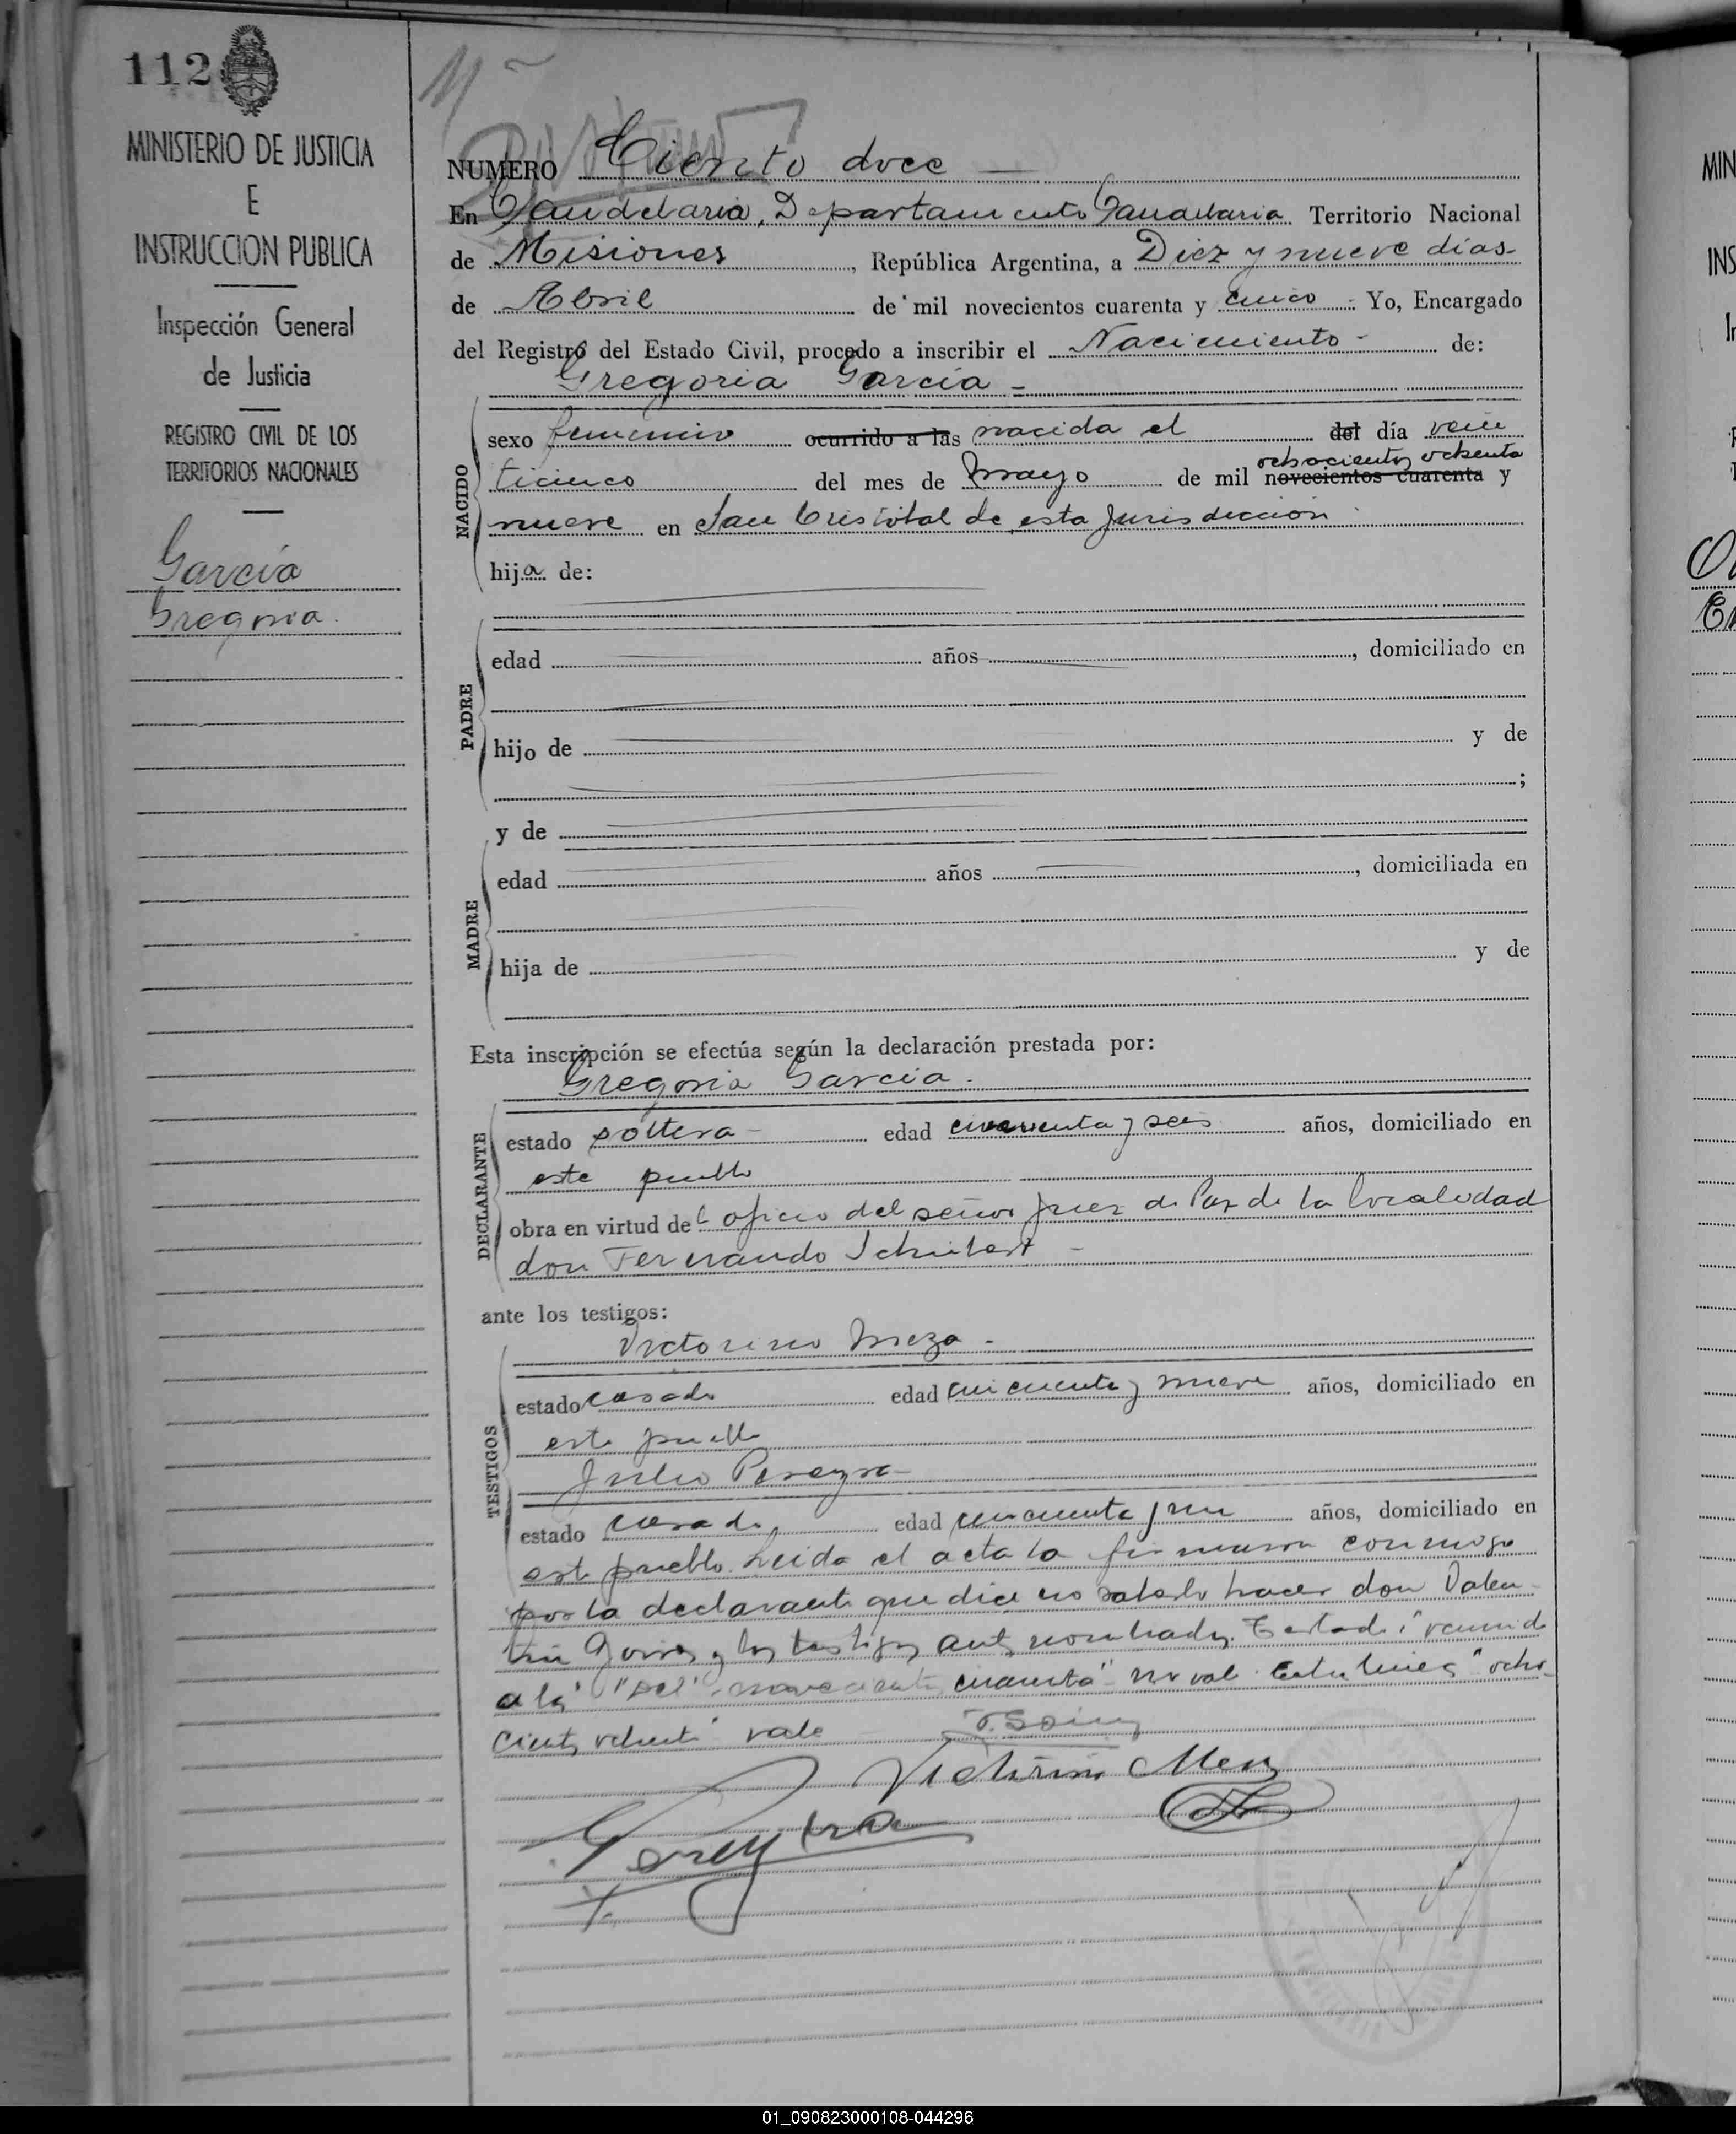 112
MINISTERIO DE JUSTICIA
E
INSTRUCCION PUBLICA
Inspección General
de Justicia
REGISTRO CIVIL DE LOS
TERRITORIOS NACIONALES
García
Gregoria.
NUMERO Ciento doce
En Candelaria, Departamento Candelaria Territorio Nacional
de Misiones, República Argentina, a Diez y nueve días
de Abril de mil novecientos cuarenta y cinco. Yo, Encargado
del Registro del Estado Civil, procedo a inscribir el Nacimiento de:
Gregoria García
NACIDO
sexo femenino ocurrido a las nacida el del día vein
ochocientos ochenta
ticinco del mes de mayo de mil novecientos cuarenta y
nueve en San Cristobal de esta Jurisdicción
hija de:
PADRE
edad años, domiciliado en
hijo de y de
;
y de
MADRE
edad años, domiciliada en
hija de y de
Esta inscripción se efectúa según la declaración prestada por:
Gregoria García.
DECLARANTE
estado soltera edad cincuenta y seis años, domiciliado en
este pueblo
obra en virtud del oficio del señor Juez de Paz de la localidad
don Fernando Schubert
ante los testigos:
Victorino Meza
TESTIGOS
estado casado edad cincuenta y nueve años, domiciliado en
este pueblo
Julio Pereyra
estado casado, edad cincuenta y un años, domiciliado en
este pueblo. Leida el acta la firmaron conmigo
por la declarante que dice no saberlo hacer don Valen
tin y los testigos ant nombrados. Testado: "ocurrido
a las" "del" "novecientos cuarenta" no vale. Entre lineas "ocho
cientos ochenta" vale
Victorino Meza
Pereyra
01_090823000108-044296